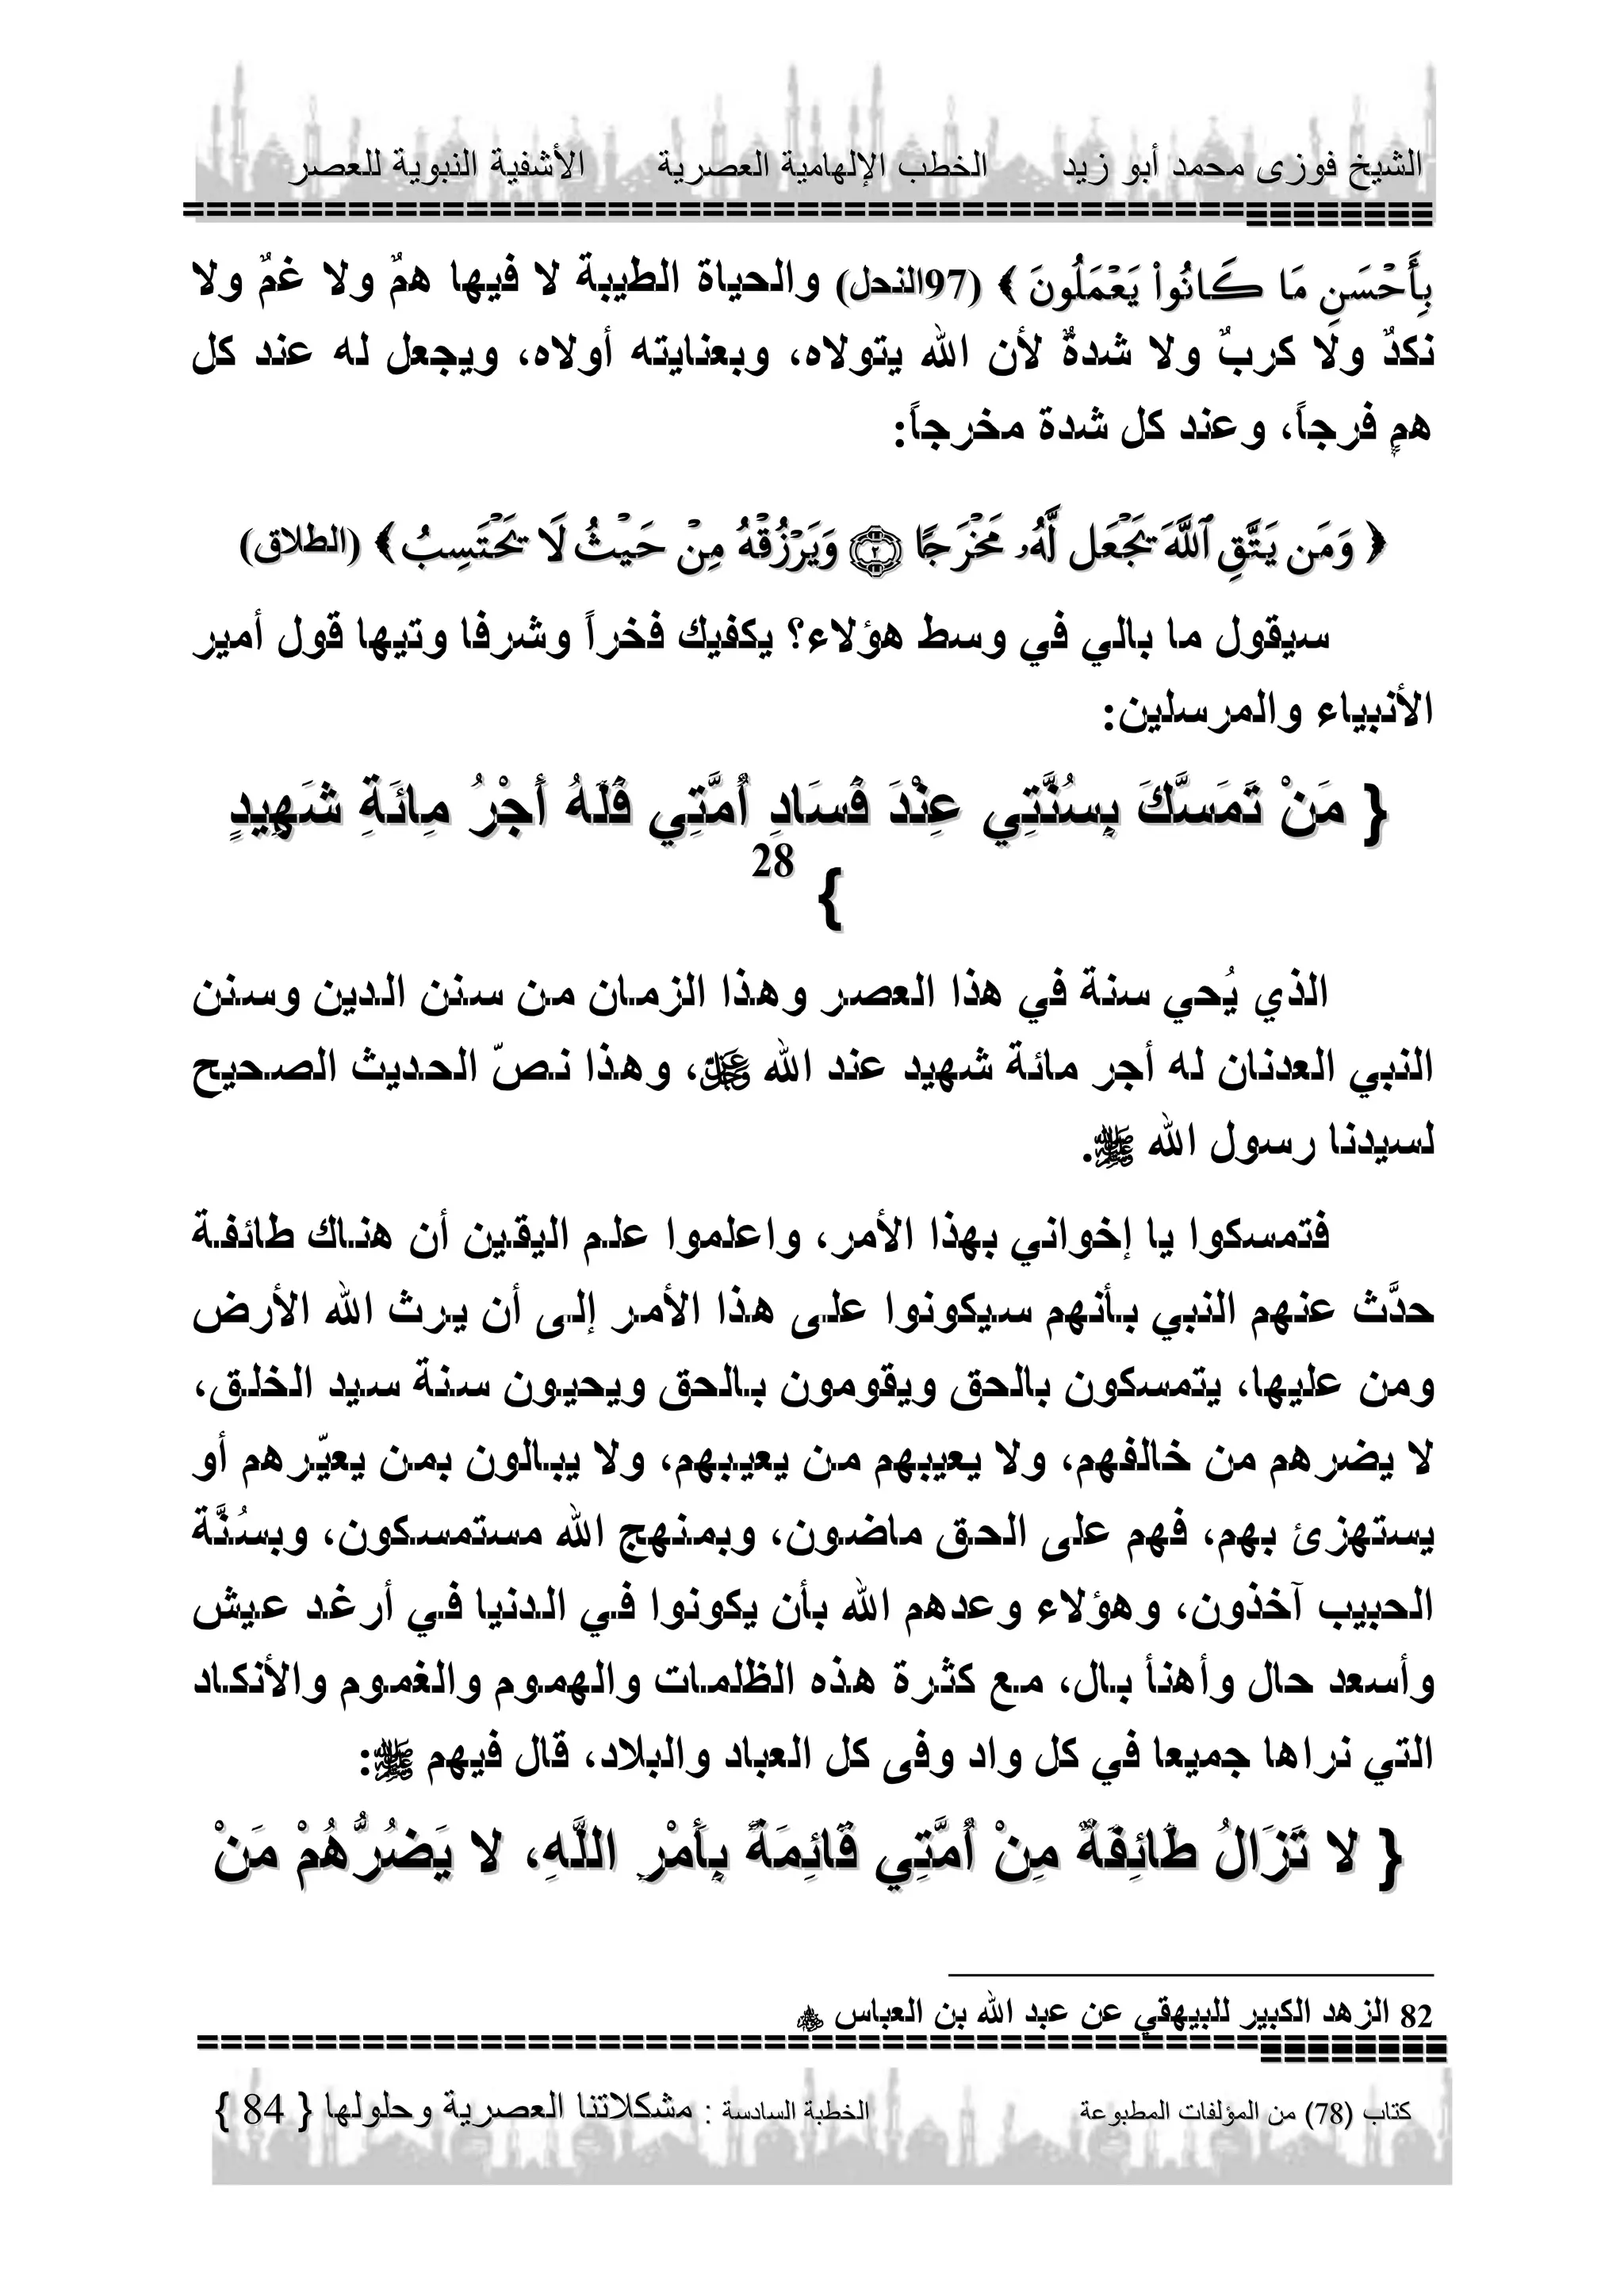 الشيخ فوزى محمد أبو زيد الخطب الإلهامية العصرية الأشفية النبوية للعصر
بِأَحْسَنِ مَا كَانُوا۟ يَعْمَلُونَ ﴾ (97النحل) والحياة الطيبة لا فيها همٌ ولا غمٌ ولا
نكدٌ ولا كربٌ ولا شدةٌ لأن الله يتولاه، وبعنايته أولاه، ويجعل له عند كل
همٍ فرجاً، وعند كل شدة مخرجاً:
﴿ وَمَن يَتَّقِ ٱللَّهَ يَجْعَل لَّهُۥ مَخْرَجًا ۝٢ وَيَرْزُقْهُ مِنْ حَيْثُ لَا يَحْتَسِبُ ﴾ (الطلاق)
سيقول ما بالي في وسط هؤلاء؟ يكفيك فخراً وشرفا وتيها قول أمير
الأنبياء والمرسلين:
{ مَنْ تَمَسَّكَ بِسُنَّتِي عِنْدَ فَسَادِ أُمَّتِي فَلَهُ أَجْرُ مِائَةِ شَهِيدٍ
} 28
الذي يُحي سنة في هذا العصر وهذا الزمان من سنن الدين وسنن
النبي العدنان له أجر مائة شهيد عند الله عز وجل، وهذا نصّ الحديث الصحيح
لسيدنا رسول الله ﷺ.
فتمسكوا يا إخواني بهذا الأمر، واعلموا علم اليقين أن هناك طائفة
حدَّث عنهم النبي بأنهم سيكونوا على هذا الأمر إلى أن يرث الله الأرض
ومن عليها، يتمسكون بالحق ويقومون بالحق ويحيون سنة سيد الخلق،
لا يضرهم من خالفهم، ولا يعيبهم من يعيبهم، ولا يبالون بمن يعيّرهم أو
يستهزئ بهم، فهم على الحق ماضون، وبمنهج الله مستمسكون، وبسُنَّة
الحبيب آخذون، وهؤلاء وعدهم الله بأن يكونوا في الدنيا في أرغد عيش
وأسعد حال وأهنأ بال، مع كثرة هذه الظلمات والهموم والغموم والأنكاد
التي نراها جميعا في كل واد وفى كل العباد والبلاد، قال فيهم ﷺ:
{ لا تَزَالُ طَائِفَةٌ مِنْ أُمَّتِي قَائِمَةً بِأَمْرِ اللَّهِ، لا يَضُرُّهُمْ مَنْ
82 الزهد الكبير للبيهقي عن عبد الله بن العباس
كتاب (78) من المؤلفات المطبوعة الخطبة السادسة : مشكلاتنا العصرية وحلولها { 84 }